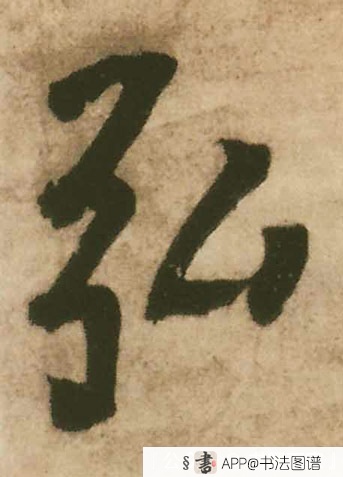 弘
§ 書 APP@书法图谱